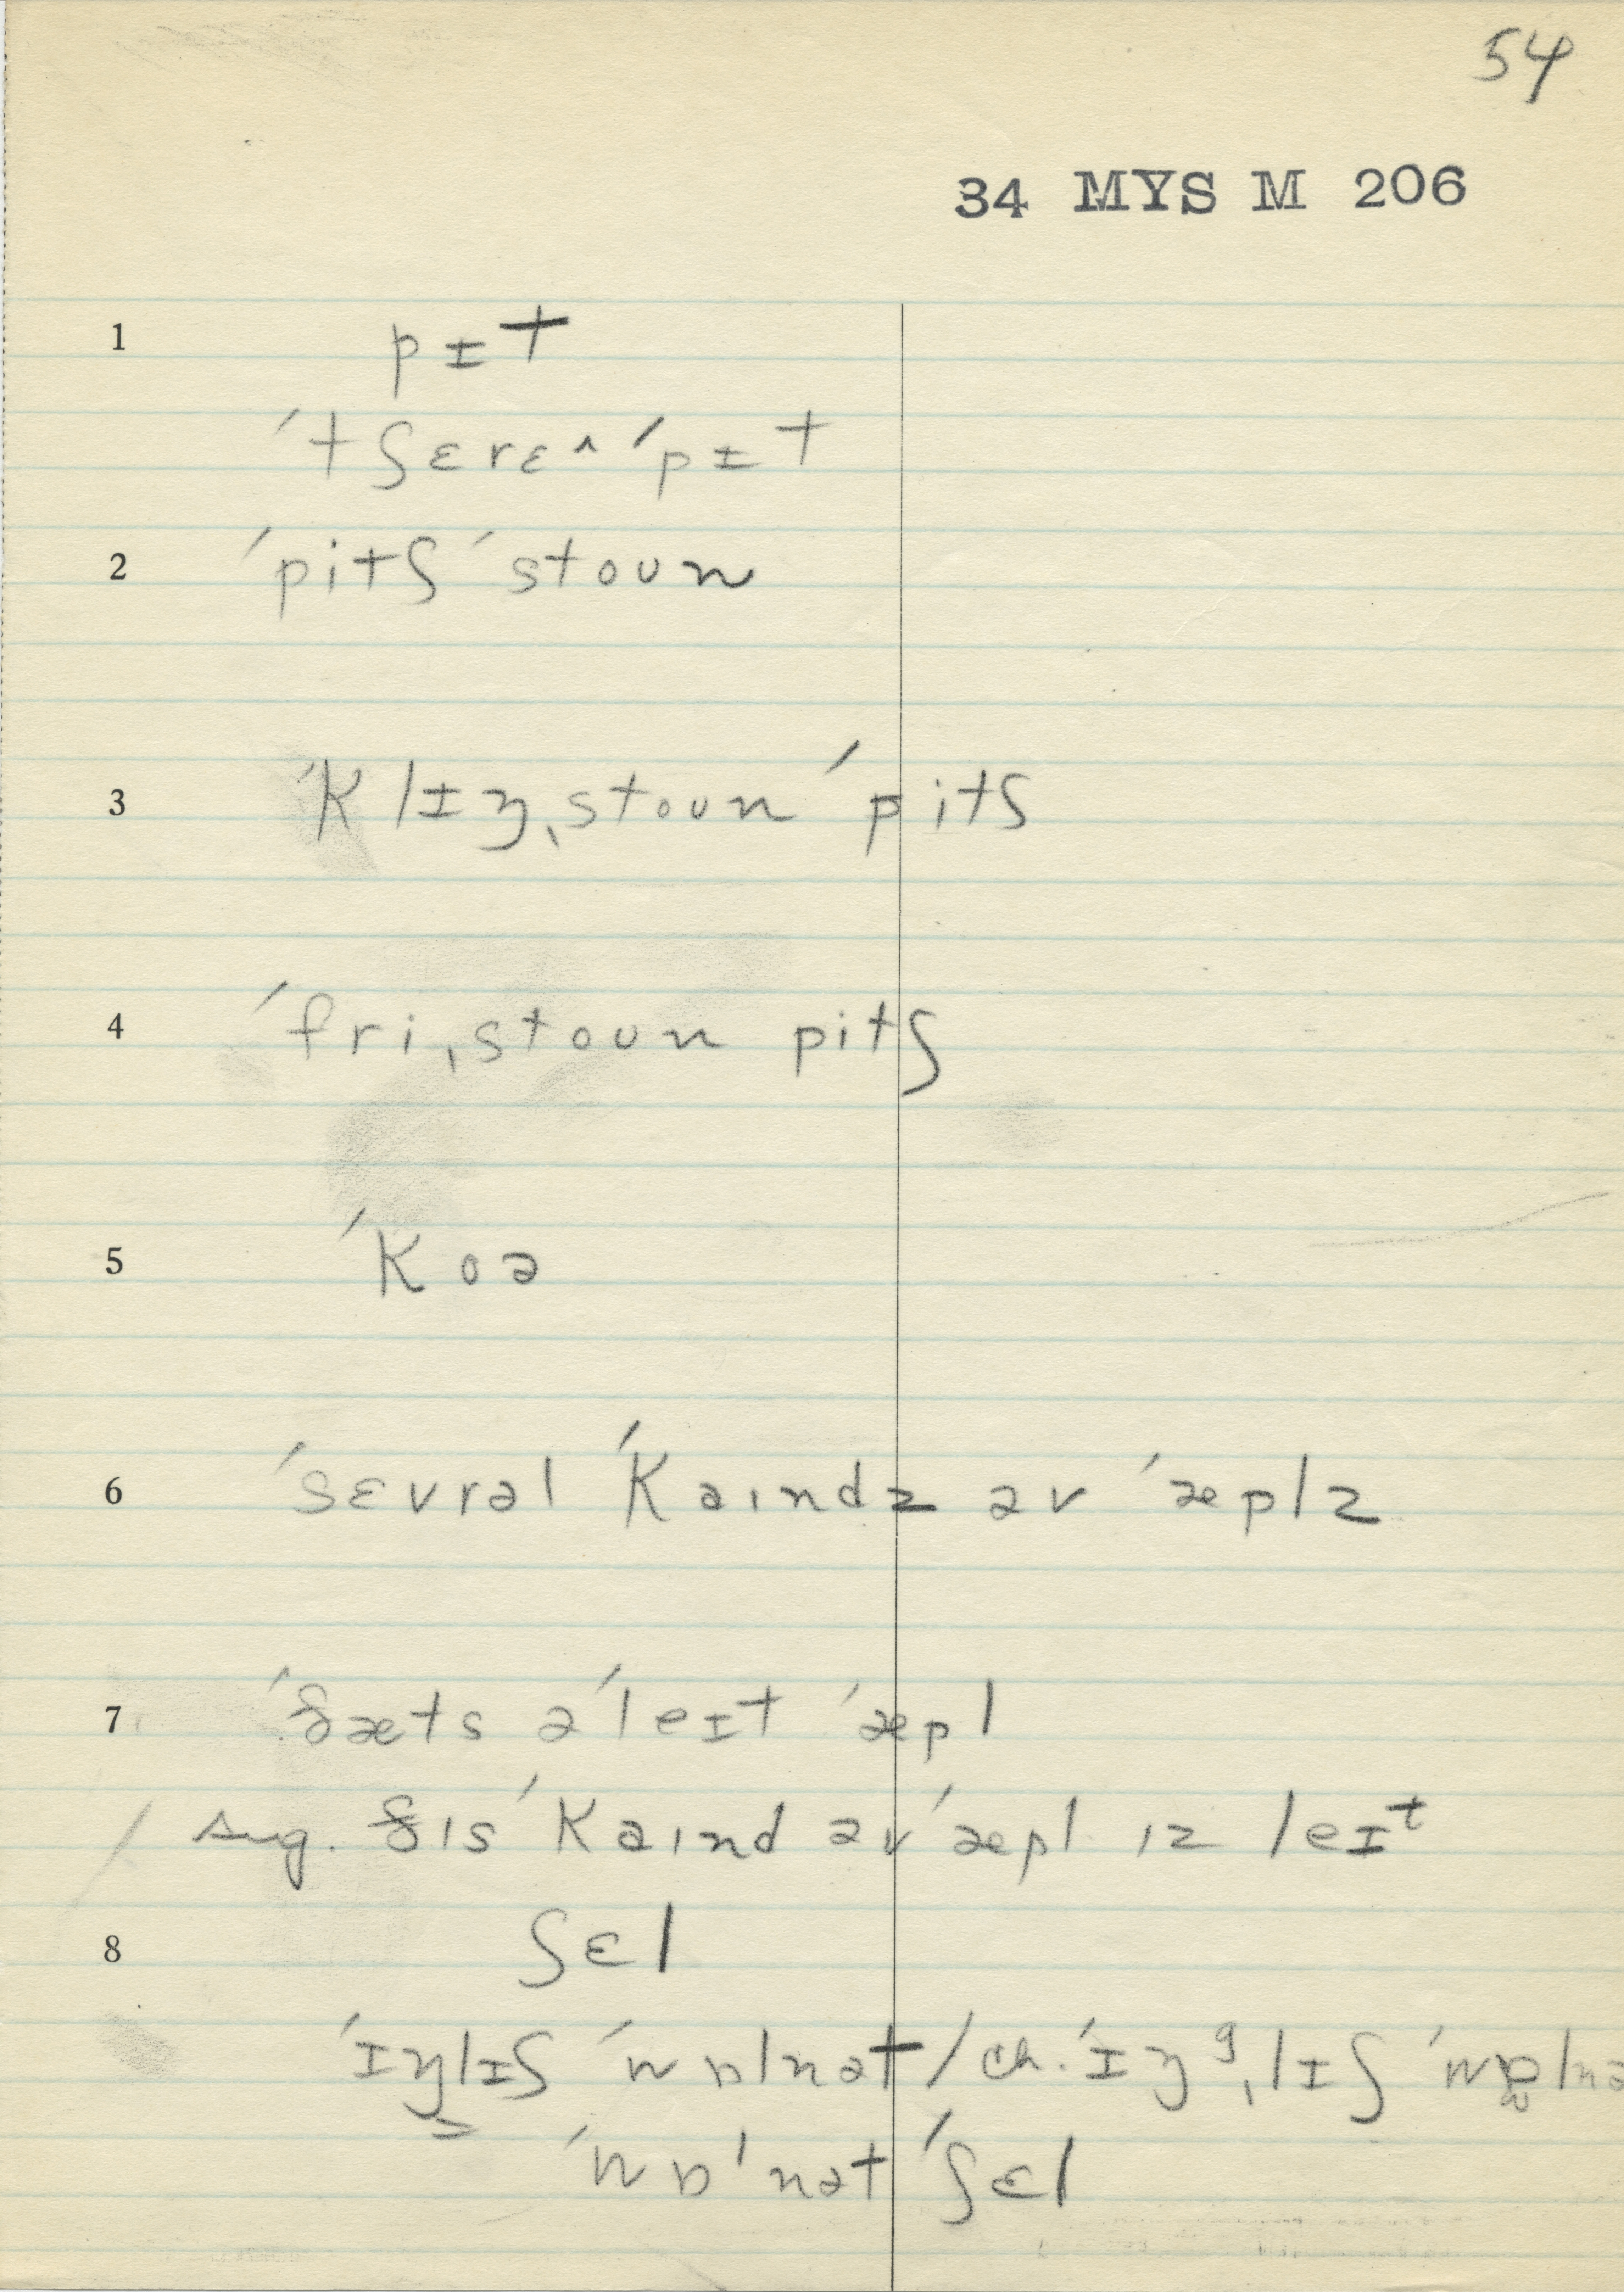 54
34 MYS M 206
1 pɪt
ˈtʃɛrɛ^ ˈpɪt
2 ˈpitʃ ˈstoun
3 ˈklɪŋˌstoun ˈpitʃ
4 ˈfriˌstoun pitʃ
5 ˈkoə
6 ˈsɛvrəl ˈkaɪndz əv ˈæplz
7 ˈðæts ə ˈleɪt ˈæpl
/ sug. ðɪs ˈkaɪnd əv ˈæpl ɪz leɪt
8 ʃɛl
ˈɪŋlɪʃ ˈwɒlnət / ch. ˈɪŋᵍˌlɪʃ ˈwɒlnə
ˈwɒlnət ˈʃɛl